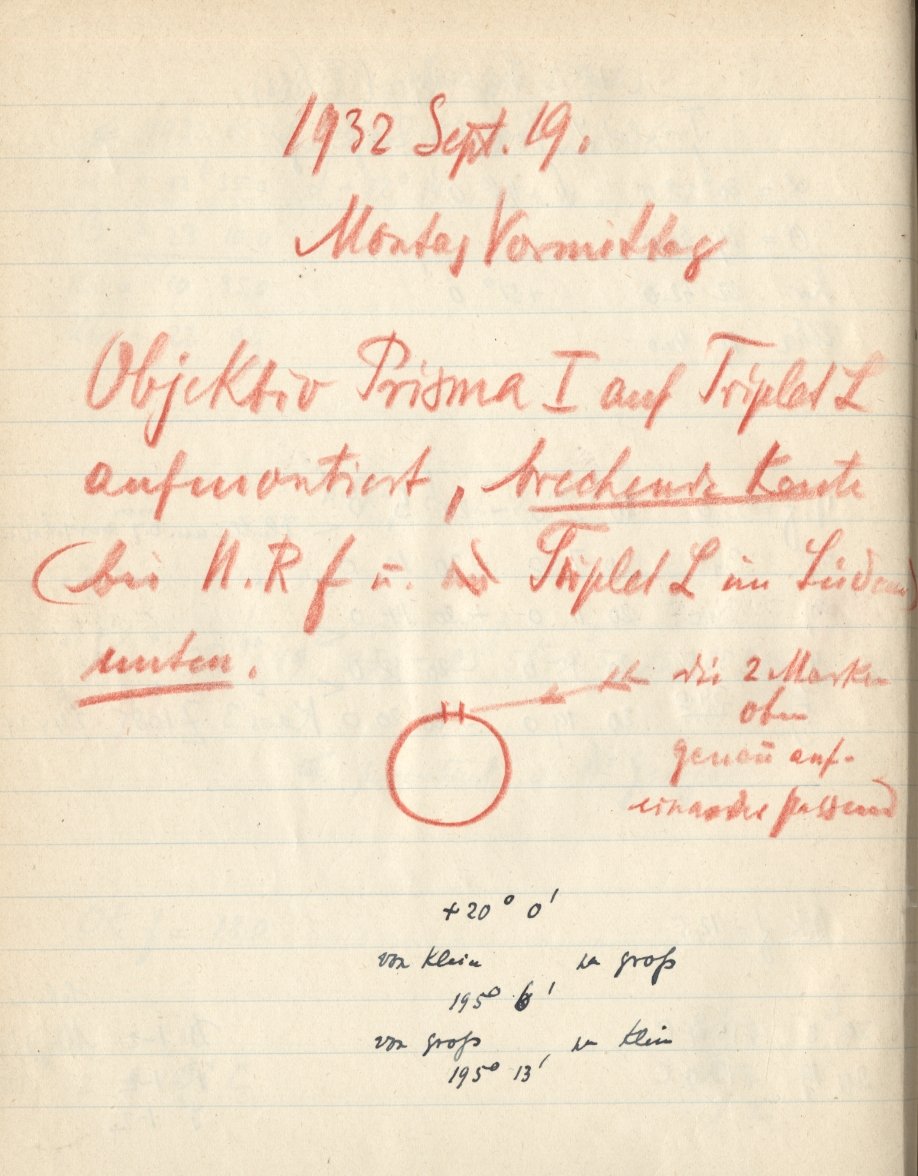 1932 Sept. 19.
Montag Vormittag
Objektiv Prisma I auf Triplet L
aufmontiert, brechende Kante
(bei N.R f u. Triplet L im Süden)
unten.
die 2 Marken
oben
genau auf-
einander passend
+20° 0'
von klein zu groß
195° 6'
von groß zu klein
195° 13'